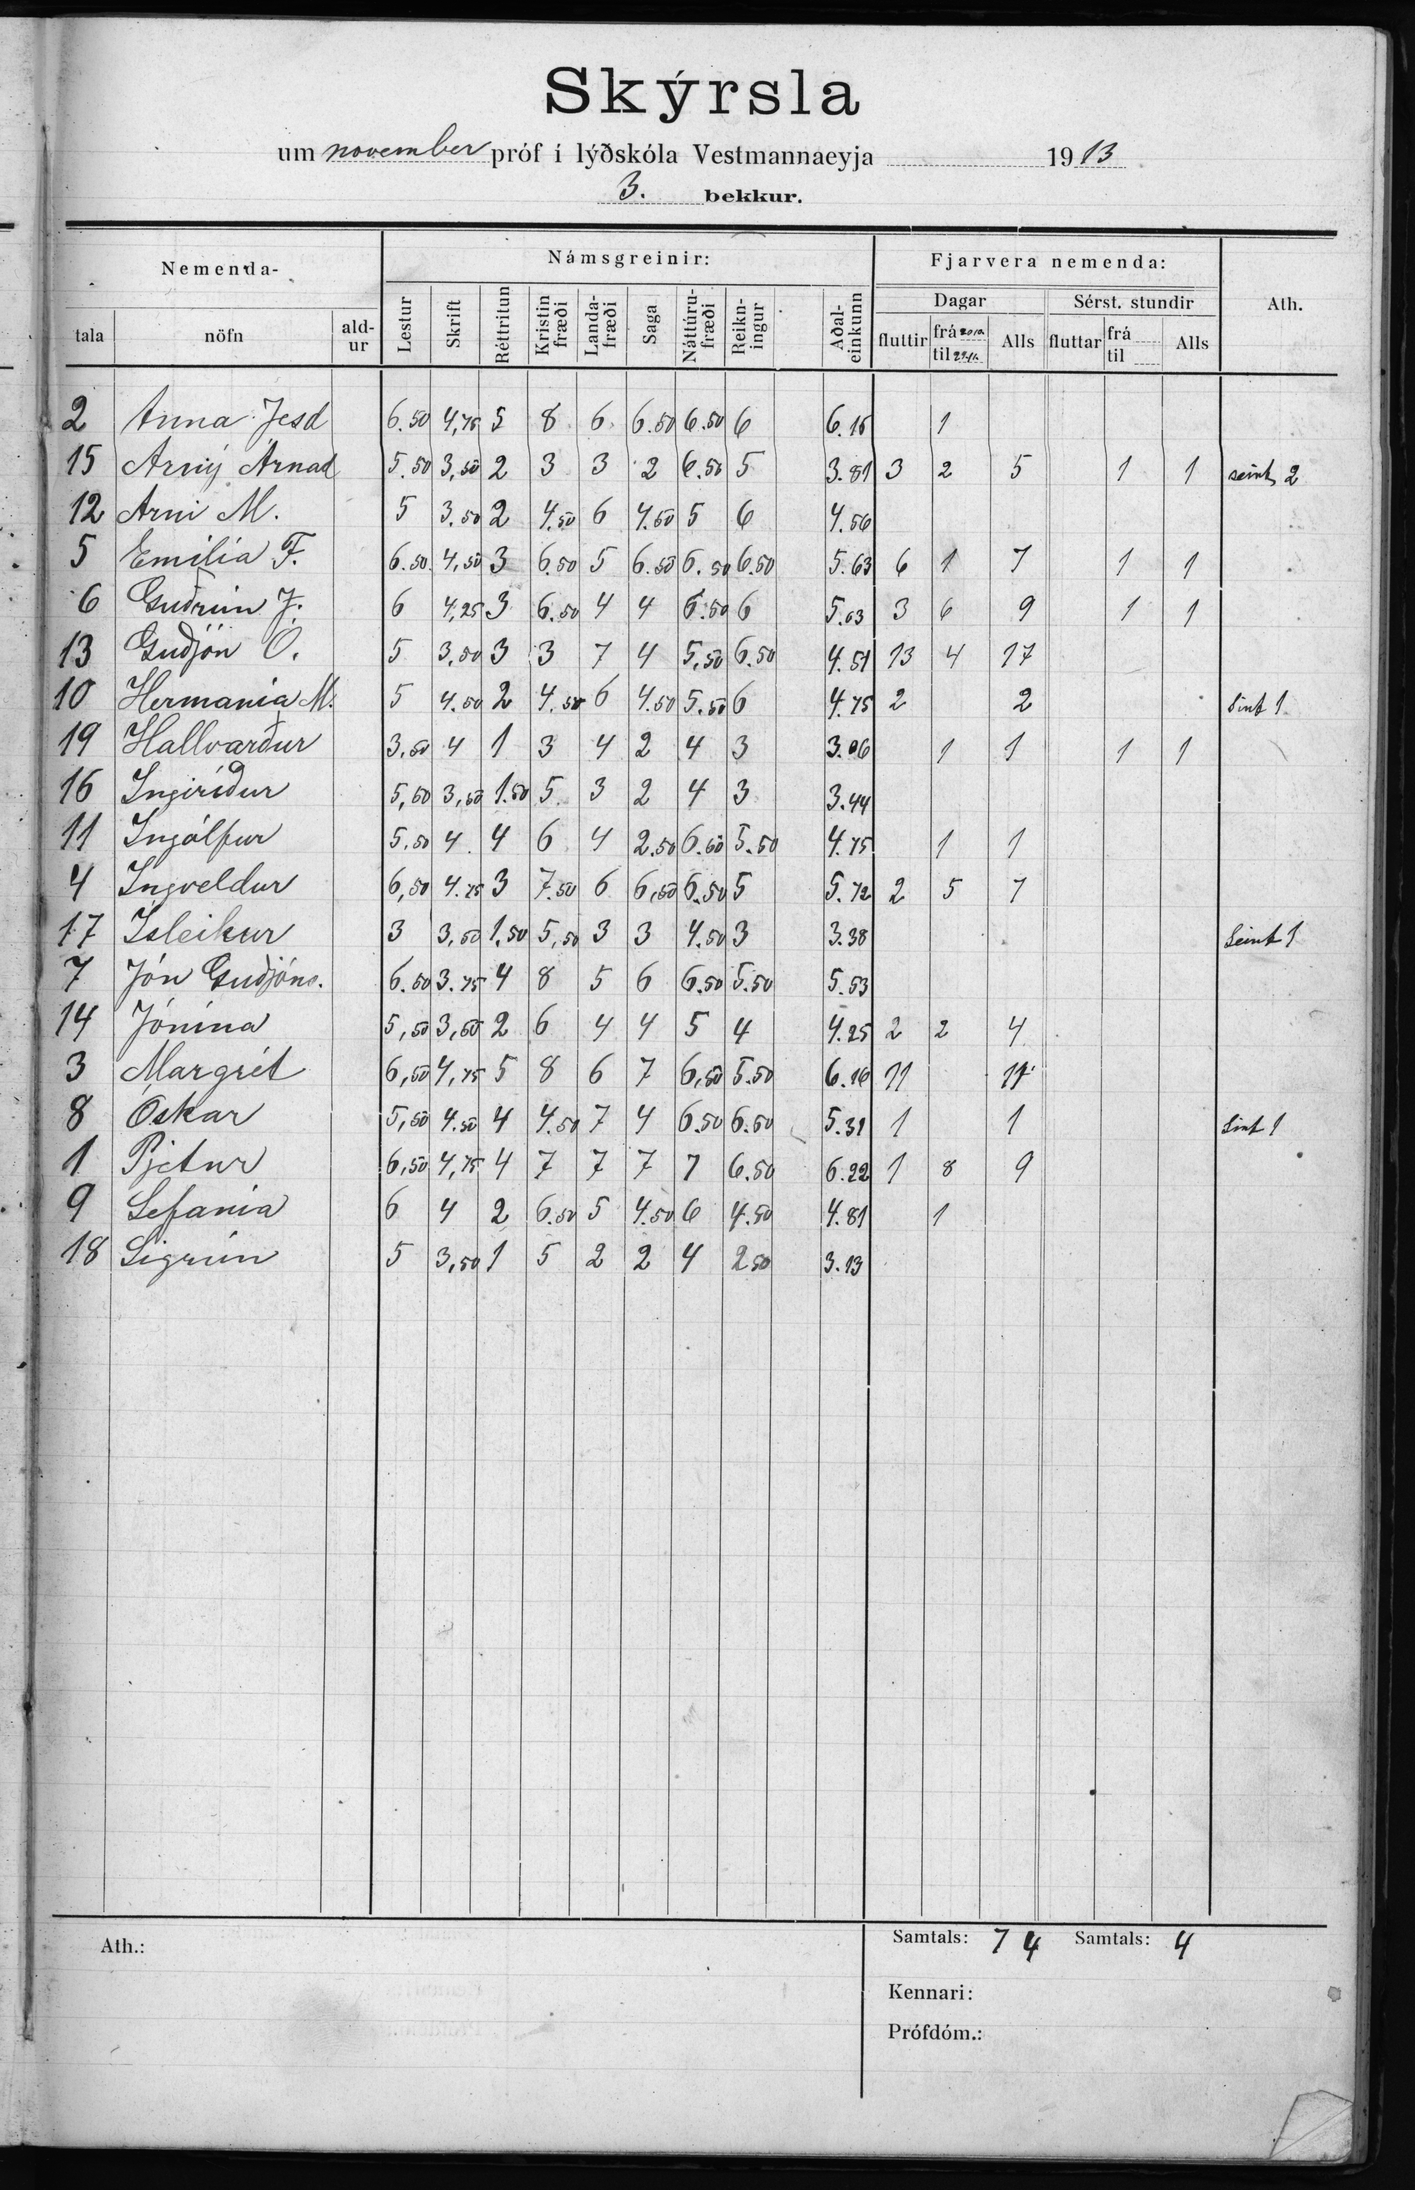 Skýrsla
um november próf í lýðskóla Vestmannaeyja 1913
3. bekkur.
Nemenda- Námsgreinir: Fjarvera nemenda: Ath.
Dagar Sérst. stundir
tala nöfn aldur Lestur Skrift Réttritun Kristinfræði Landafræði Saga Náttúrufræði Reikningur Aðaleinkunn fluttir frá til Alls fluttar frá til Alls
2 Anna Jesd 6.50 4,75 5 8 6 6.50 6.50 6 6.16 1
15 Árný Árnad 5.50 3,50 2 3 3 2 6.50 5 3.81 3 2 5 1 1 seint 2
12 Árni M. 5 3.50 2 4.50 6 4.50 5 6 4.56
5 Emilía F. 6.50 4,50 3 6.50 5 6.50 6.50 6.50 5.63 6 1 7 1 1
6 Guðrún J. 6 4,25 3 6.50 4 4 6.50 6 5.03 3 6 9 1 1
13 Guðjón Ó. 5 3,50 3 3 7 4 5,50 6.50 4.51 13 4 17
10 Hermanía M. 5 4.50 2 4.50 6 4.50 5.50 6 4.75 2 2 Sint 1
19 Hallvarður 3,50 4 1 3 4 2 4 3 3.06 1 1 1 1
16 Ingiríður 5,50 3,50 1.50 5 3 2 4 3 3.44
11 Ingólfur 5,50 4 4 6 4 2.50 6.50 5.50 4.75 1 1
4 Ingveldur 6,50 4.75 3 7.50 6 6,50 6.50 5 5.72 2 5 7
17 Ísleikur 3 3,50 1.50 5,50 3 3 4.50 3 3.38 Seint 1
7 Jón Guðjóns. 6.50 3.75 4 8 5 6 6.50 5.50 5.53
14 Jónína 5,50 3,50 2 6 4 4 5 4 4.25 2 2 4
3 Margrét 6,50 4,75 5 8 6 7 6,50 5.50 6.16 11 11
8 Óskar 5,50 4.50 4 4.50 7 4 6.50 6.50 5.31 1 1 Sint 1
1 Pjetur 6,50 4,75 4 7 7 7 7 6.50 6.22 1 8 9
9 Sefanía 6 4 2 6.50 5 4.50 6 4.50 4.81 1
18 Sigrún 5 3,50 1 5 2 2 4 2.50 3.13
Ath.: Samtals: 74 Samtals: 4
Kennari:
Prófdóm.: